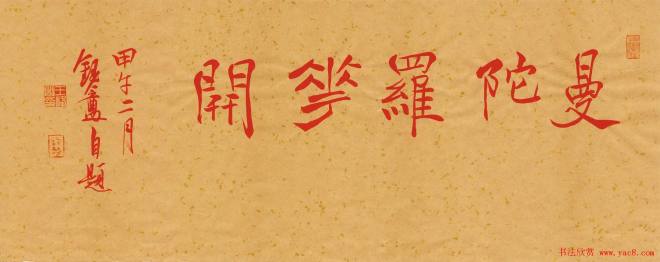 曼陀羅華開
甲午二月
銀凫自題
书法欣赏 www.yac8.com